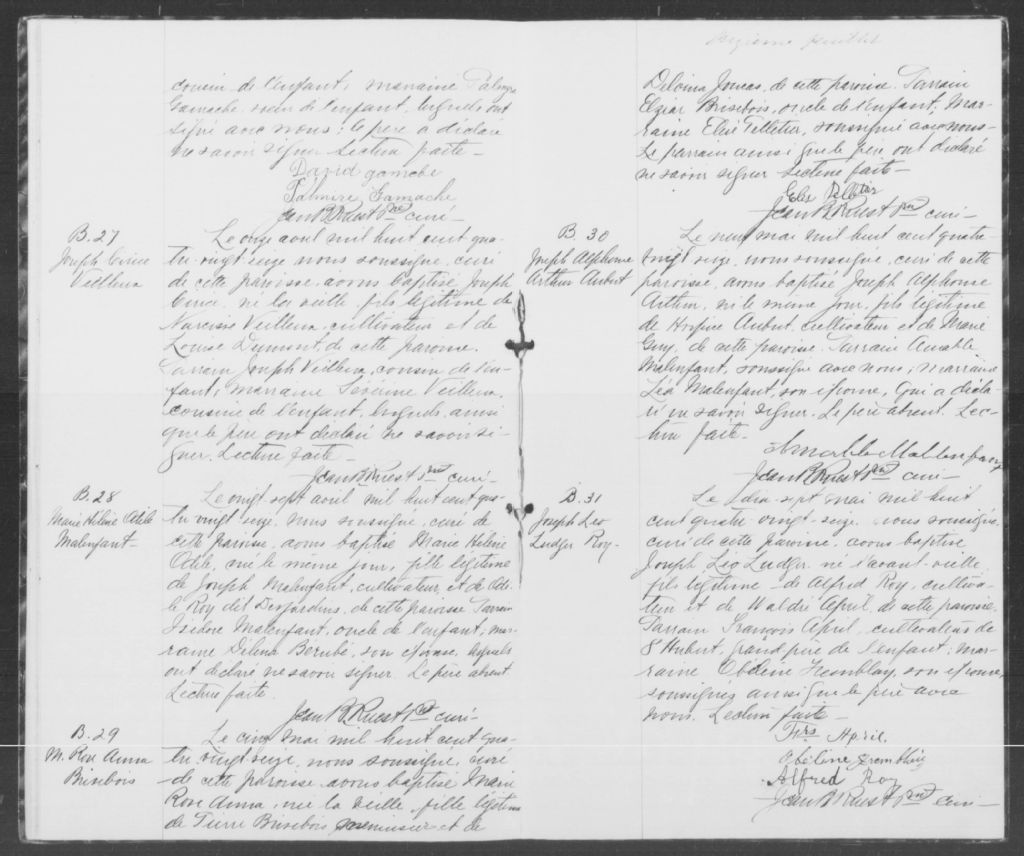 cousin de l'enfant, marraine Palmyre
Gamache, soeur de l'enfant, lesquels ont
signé avec nous; le père a déclaré
ne savoir signer. Lecture faite —
David gamche
Palmire Gamache
Jean B. Ruest Ptre curé —
B. 27
Joseph Cirice
Veilleux
Le onze avril mil huit cent qua-
tre vingt seize nous soussigné, curé
de cette paroisse, avons baptisé Joseph
né la veille, fils légitime de
Narcisse Veilleux, cultivateur et de
Louise Dumont, de cette paroisse.
Parrain Joseph Veilleux, cousin de l'en-
fant; marraine Veilleux,
cousine de l'enfant, lesquels ainsi
que le père ont déclaré ne savoir si-
gner. Lecture faite —
Jean B. Ruest Ptre curé —
B. 28
Marie Hélène Atèle
Malenfant —
Le vingt sept avril mil huit cent qua-
tre vingt seize, nous soussigné, curé de
cette paroisse, avons baptisé Marie Hélène
Adèle, née le même jour, fille légitime
de Joseph Malenfant, cultivateur, et de Adè-
le Roy dit Desjardins, de cette paroisse. Parrain
Isidore Malenfant, oncle de l'enfant; mar-
raine Délina Berubé, son épouse, lesquels
ont déclaré ne savoir signer. Le père absent.
Lecture faite
Jean B. Ruest Ptre curé —
B. 29
M. Rose Anna
Brisebois
Le cinq mai mil huit cent qua-
tre vingt seize, nous soussigné, curé
de cette paroisse, avons baptisé Marie
Rose Anna, née la veille, fille légitime
de Pierre Brisebois, menuisier et de
feuillet
Joncas, de cette paroisse. Parrain
Elzéar Brisebois, oncle de l'enfant; Mar-
raine Elise Pelletier, soussignée avec nous —
Le parrain ainsi que le père ont déclaré
ne savoir signer. Lecture faite —
Jean B. Ruest Ptre curé —
B. 30
Joseph Alphonse
Arthur Aubut
Le neuf mai mil huit cent quatre
vingt seize, nous soussigné, curé de cette
paroisse, avons baptisé Joseph Alphonse
Arthur, né le même jour, fils légitime
de Hospice Aubut, cultivateur et de Marie
Guy, de cette paroisse. Parrain Amable
Malenfant, soussigné avec nous; marraine
Léa Malenfant, son épouse, qui a décla-
ré ne savoir signer. Le père absent. Lec-
ture faite —
Amable Mallenfang
Jean B. Ruest Ptre curé —
B. 31
Joseph Léo
Ludger Roy —
Le dix sept mai mil huit
cent quatre vingt seize, nous soussigné,
curé de cette paroisse, avons baptisé
Joseph Léo Ludger, né l'avant-veille
fils légitime de Alfred Roy, cultiva-
teur et de April, de cette paroisse.
Parrain François April, cultivateur de
St Hubert, grand père de l'enfant; mar-
raine Obéline Tremblay, son épouse,
soussignés ainsi que le père avec
nous. Lecture faite —
Frs April
Obéline Tremblay
Alfred Roy
Jean B. Ruest Ptre curé —